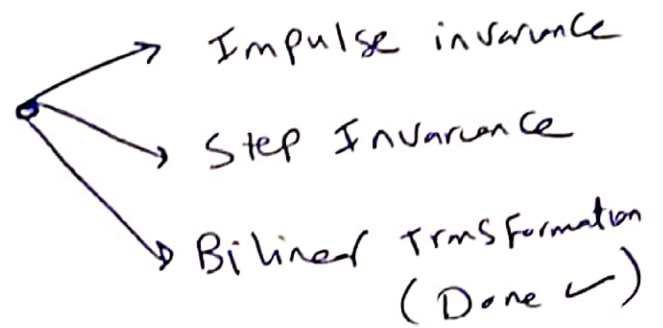 Impulse invariance
Step Invariance
Bilinear Transformation
(Done ✓)